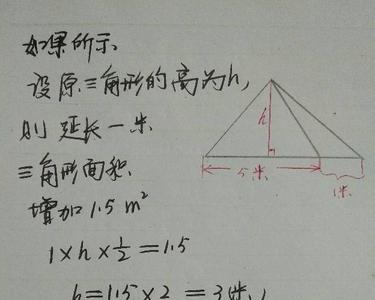 如果所示
设原三角形的高为h,
则延长一米
三角形面积
增加1.5m²
1×h×½=1.5
h=1.5×2=3(米)
h
5米
1米